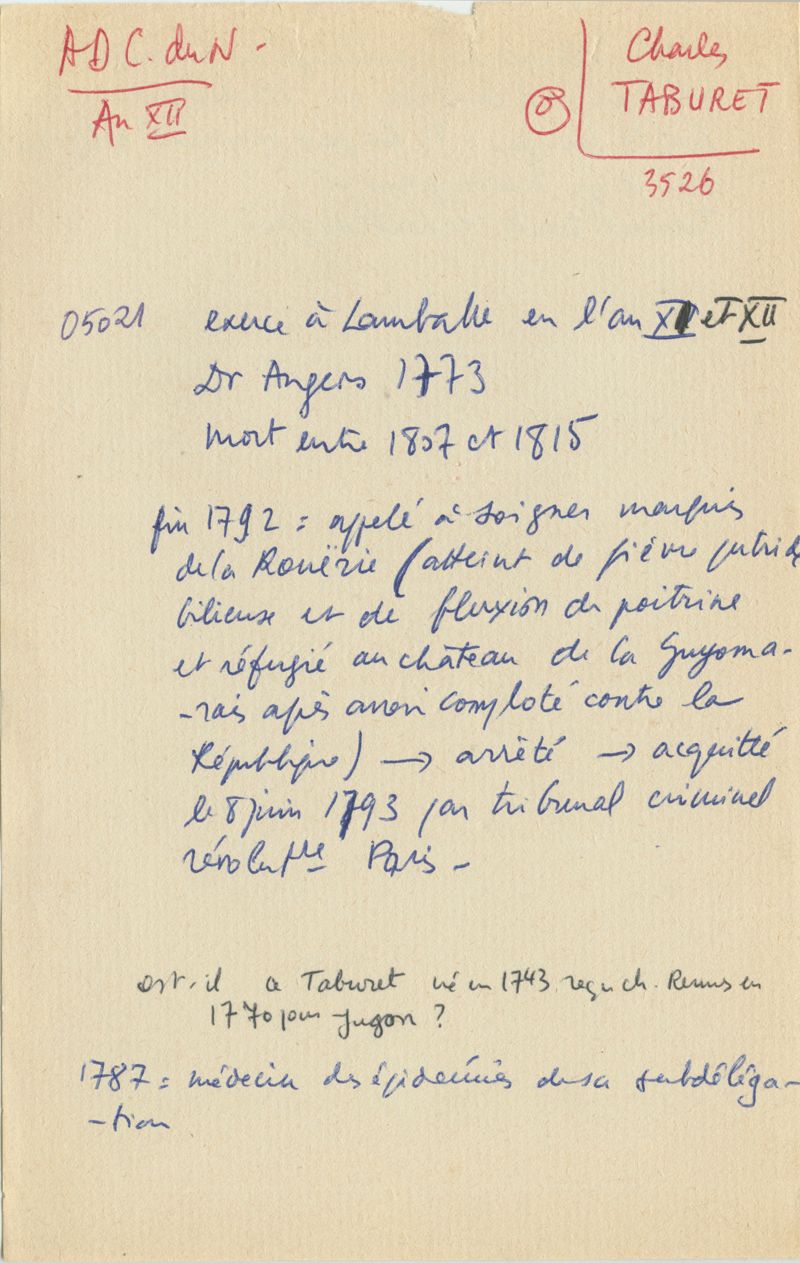 A D C. du N -
An XII
Charles
TABURET
3526
05021 exerce à Lamballe en l'an XI et XII
Dr Angers 1773
mort entre 1807 et 1815
fin 1792 = appelé à soigner marquis
de la Rouërie (atteint de fièvre putride
bilieuse et de fluxion de poitrine
et réfugié au château de la Guyoma-
-rais après avoir comploté contre la
République) → arrêté → acquitté
le 8 juin 1793 par tribunal criminel
révolutre Paris -
est-il ce Taburet né en 1743 reçu ch. Rennes en
1770 pour Jugon ?
1787 = médecin des épidémies de sa subdéléga-
-tion